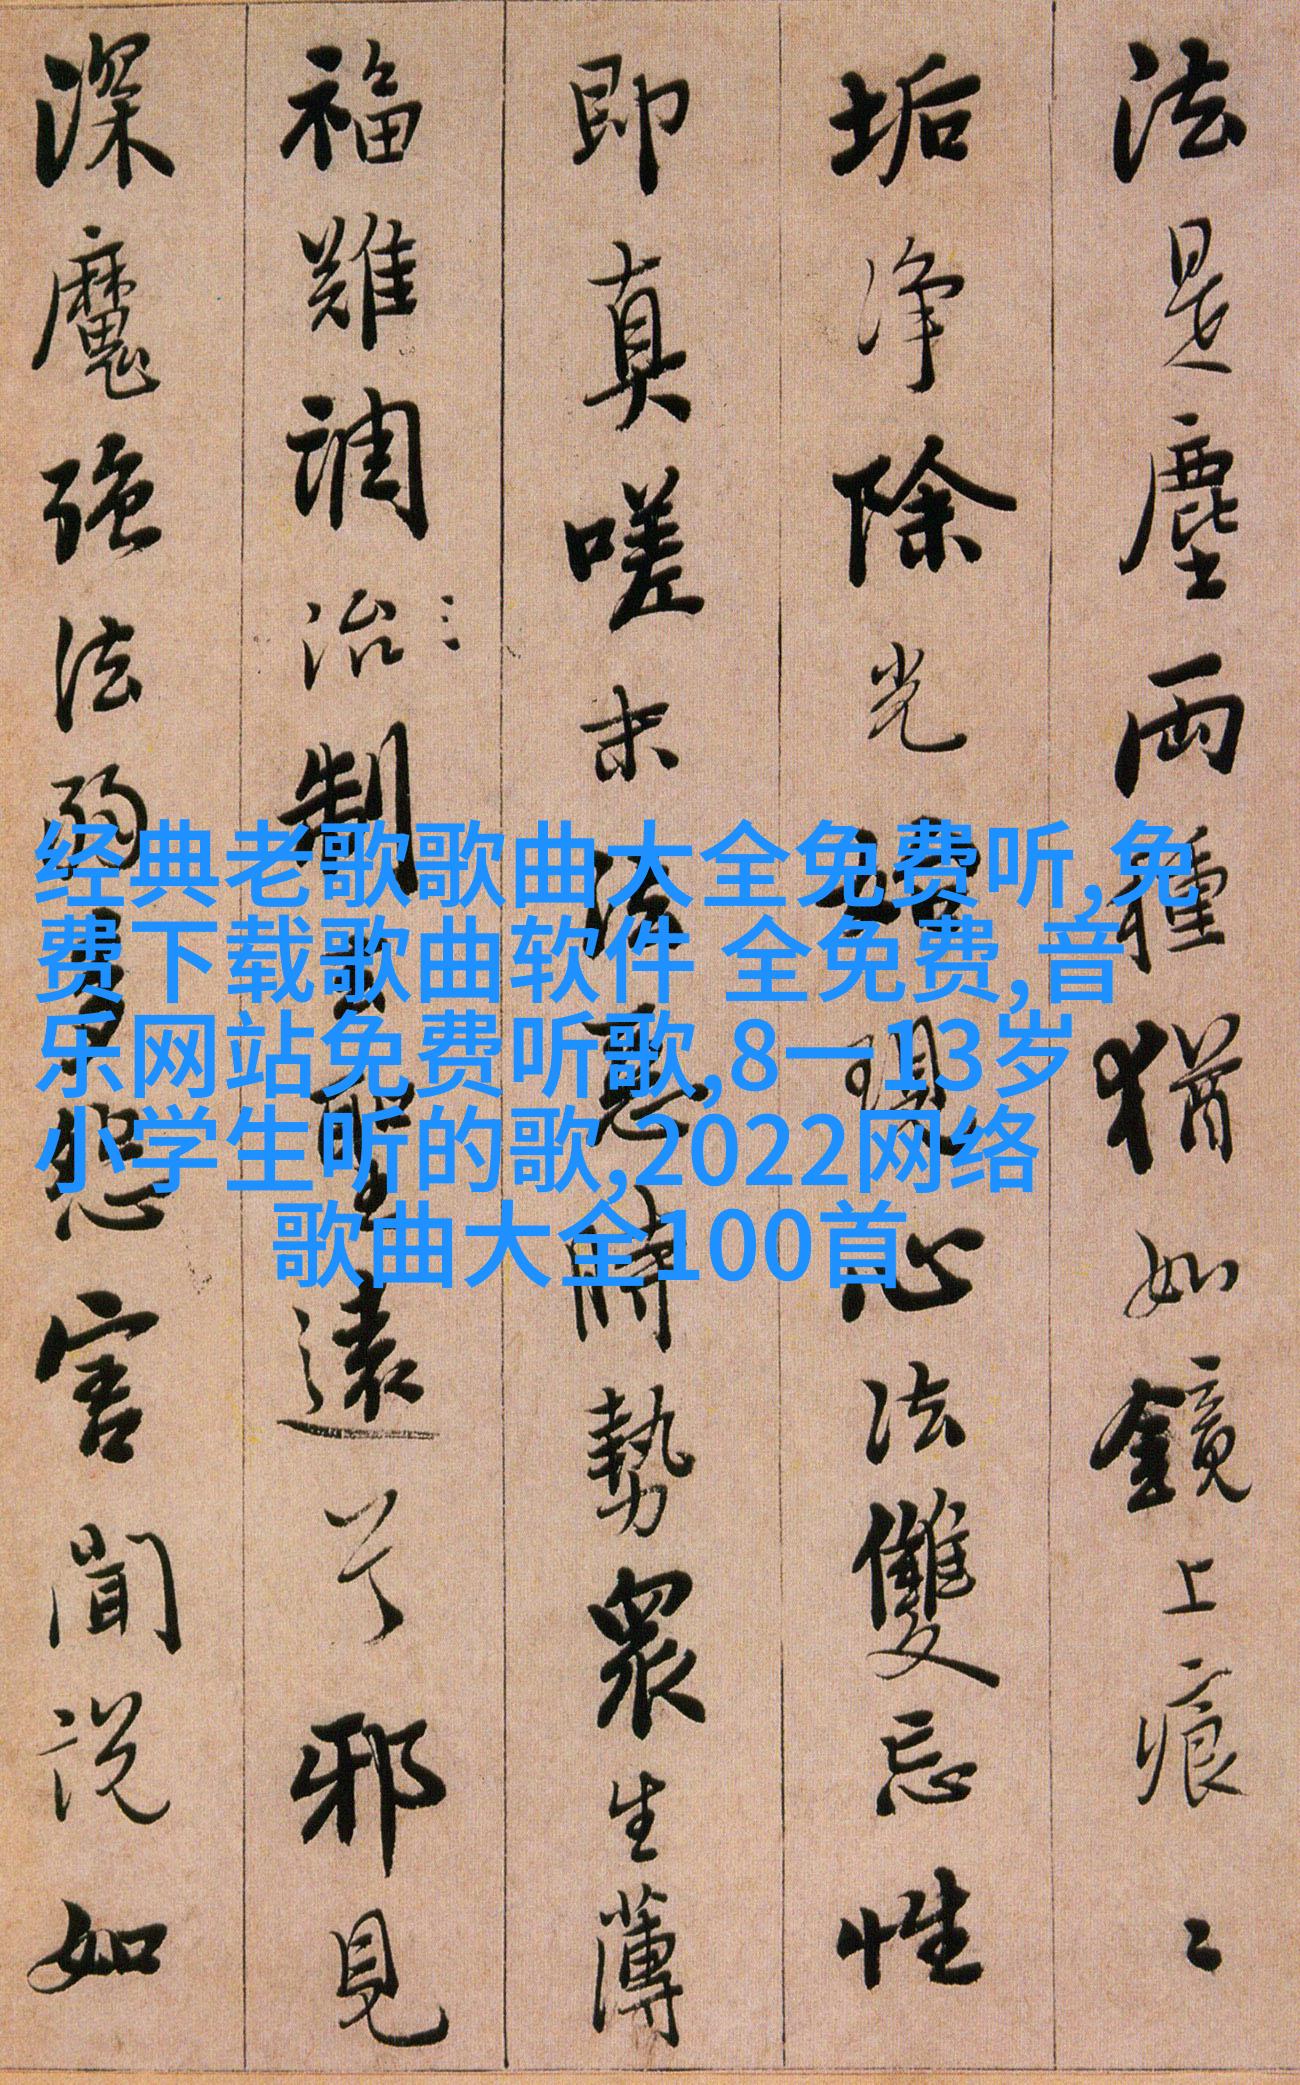 法是塵兩種猶如鏡上痕〻
垢净除光現心法雙忘性
即真嗟末法惡時勢眾生薄
福難調治制去聖遠兮邪見
深魔強法弱多怨害聞説如
经典老歌歌曲大全免费听,免
费下载歌曲软件 全免费,音
乐网站免费听歌,8一13岁
小学生听的歌,2022网络
歌曲大全100首